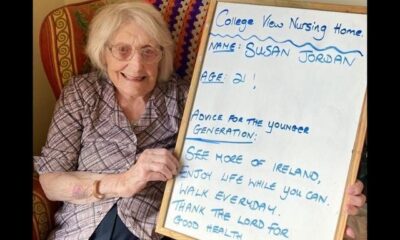 College View Nursing Home.
NAME: SUSAN JORDAN
AGE: 21!
ADVICE FOR THE YOUNGER
GENERATION:
SEE MORE OF IRELAND,
ENJOY LIFE WHILE YOU CAN.
WALK EVERYDAY.
THANK THE LORD FOR
GOOD HEALTH